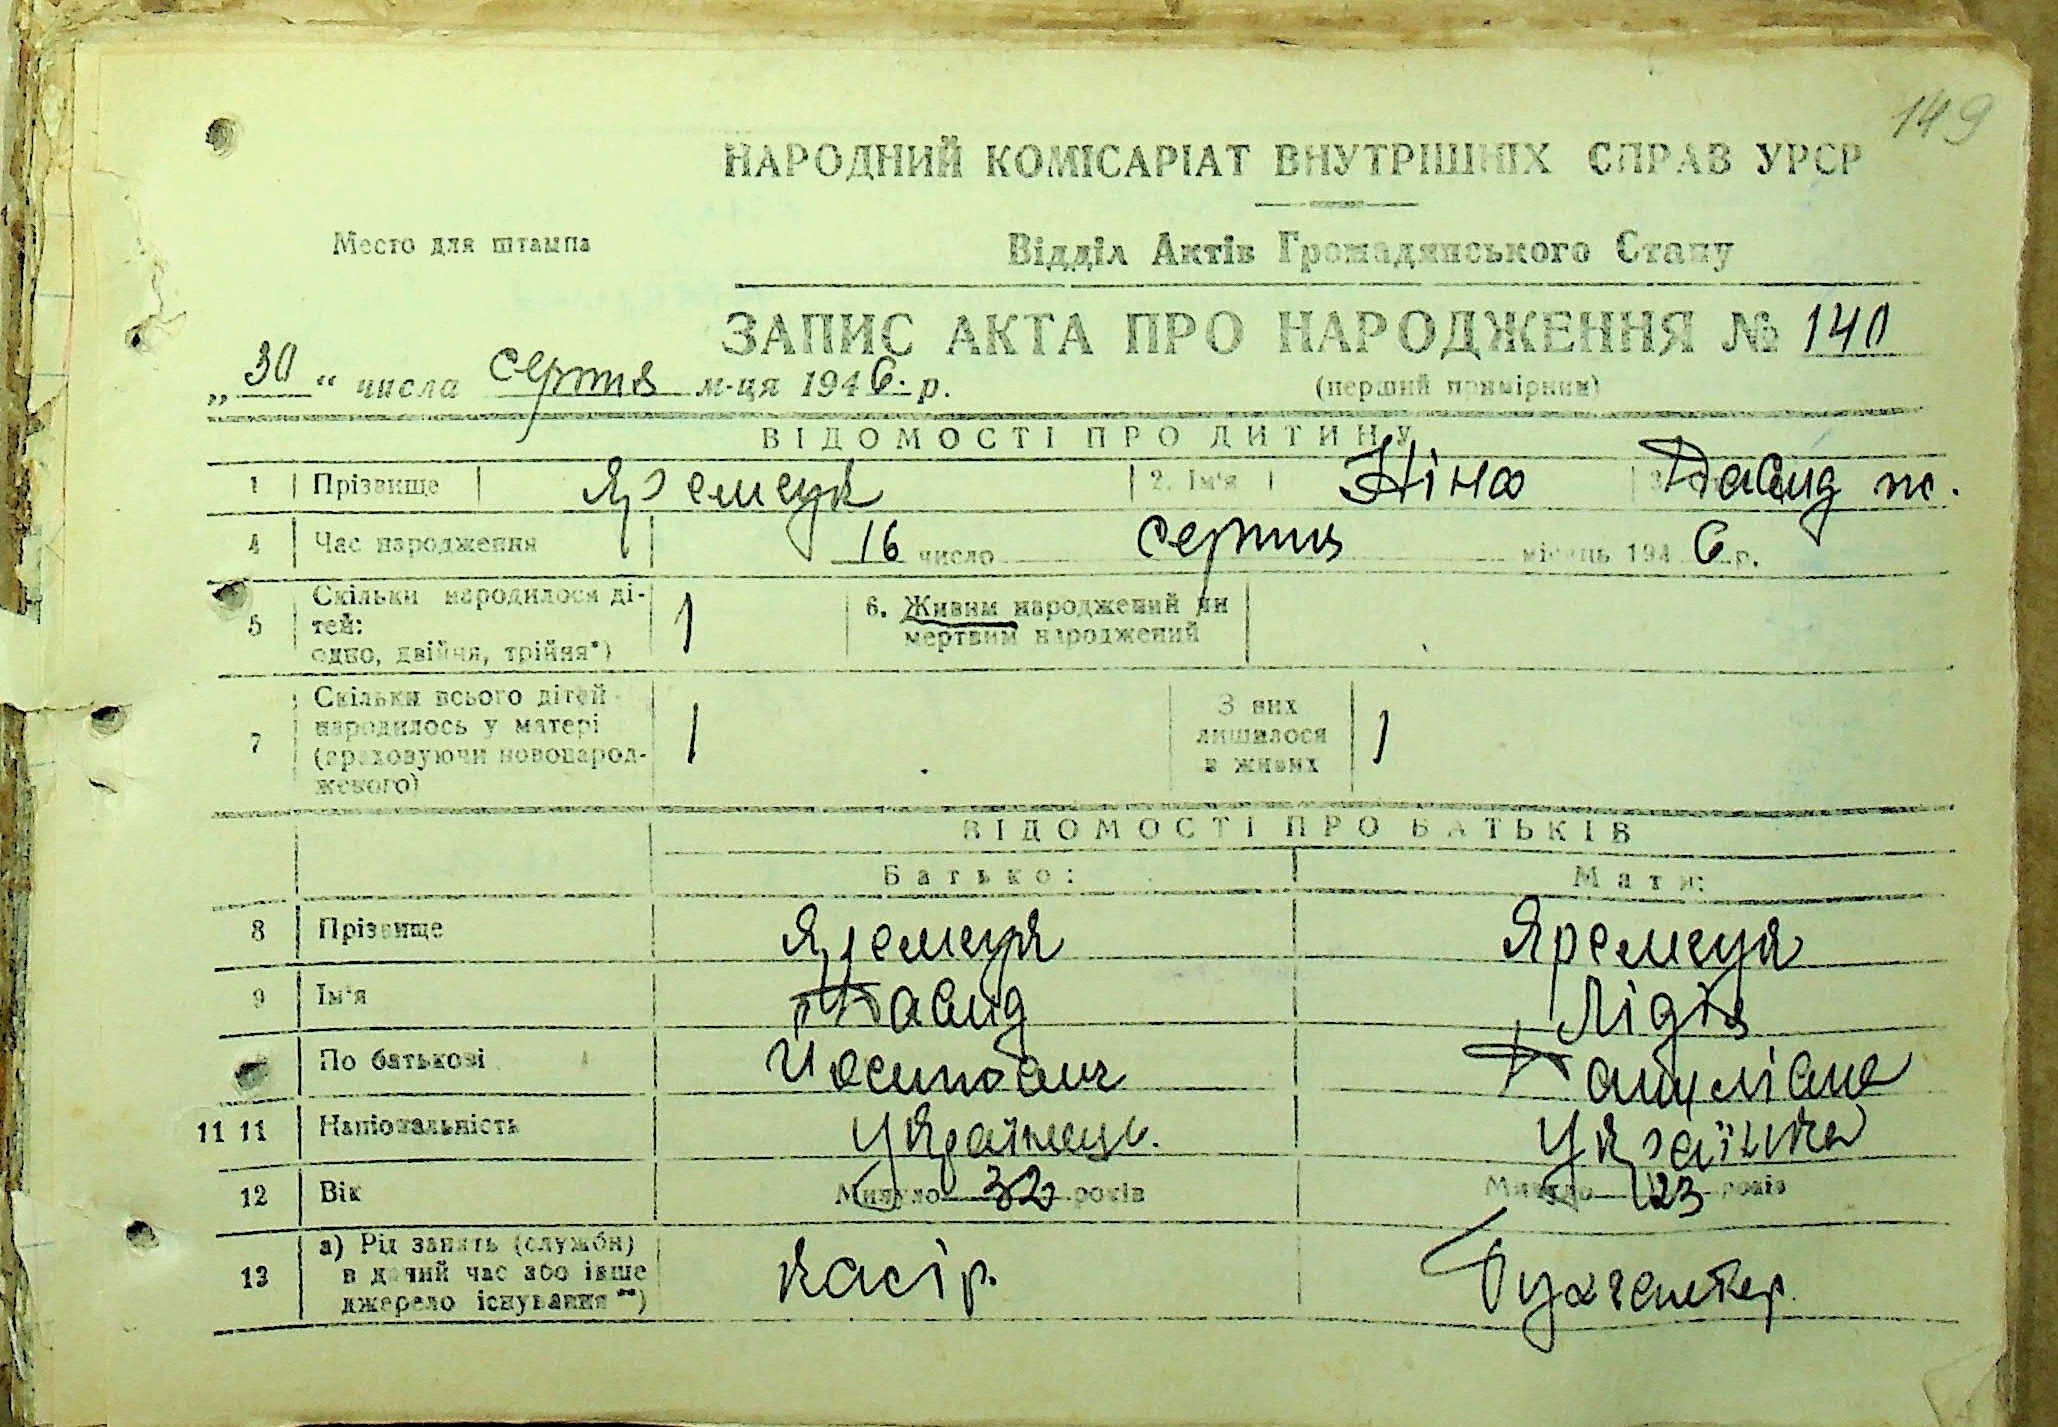 149
НАРОДНИЙ КОМІСАРІАТ ВНУТРІШНІХ СПРАВ УРСР
Место для штампа
Відділ Актів Громадянського Стану
ЗАПИС АКТА ПРО НАРОДЖЕННЯ № 140
„30“ числа серпня м-ця 1946. р.
(перший примірник)
ВІДОМОСТІ ПРО ДИТИНУ
1 Прізвище Яремеук 2. Ім'я Ніна 3. Давид т.
4 Час народження 16 число серпня місяць 1946 р.
5 Скільки народилося ді-
тей:
одно, двійня, трійня*) 1
6. Живим народжений чи
мертвим народжений
7 Скільки всього дітей
народилось у матері
(враховуючи новонарод-
женого) 1
З них
лишилося
в живих 1
ВІДОМОСТІ ПРО БАТЬКІВ
Батько: Мати:
8 Прізвище Яремеук Яремеук
9 Ім'я Давид Лідія
По батькові Йосипович
11 11 Національність Українець. Українка
12 Вік Минуло 32 років Минуло 23 років
13 а) Рід занять (служби)
в даний час або інше
джерело існування **) касір. Бухгалтер.